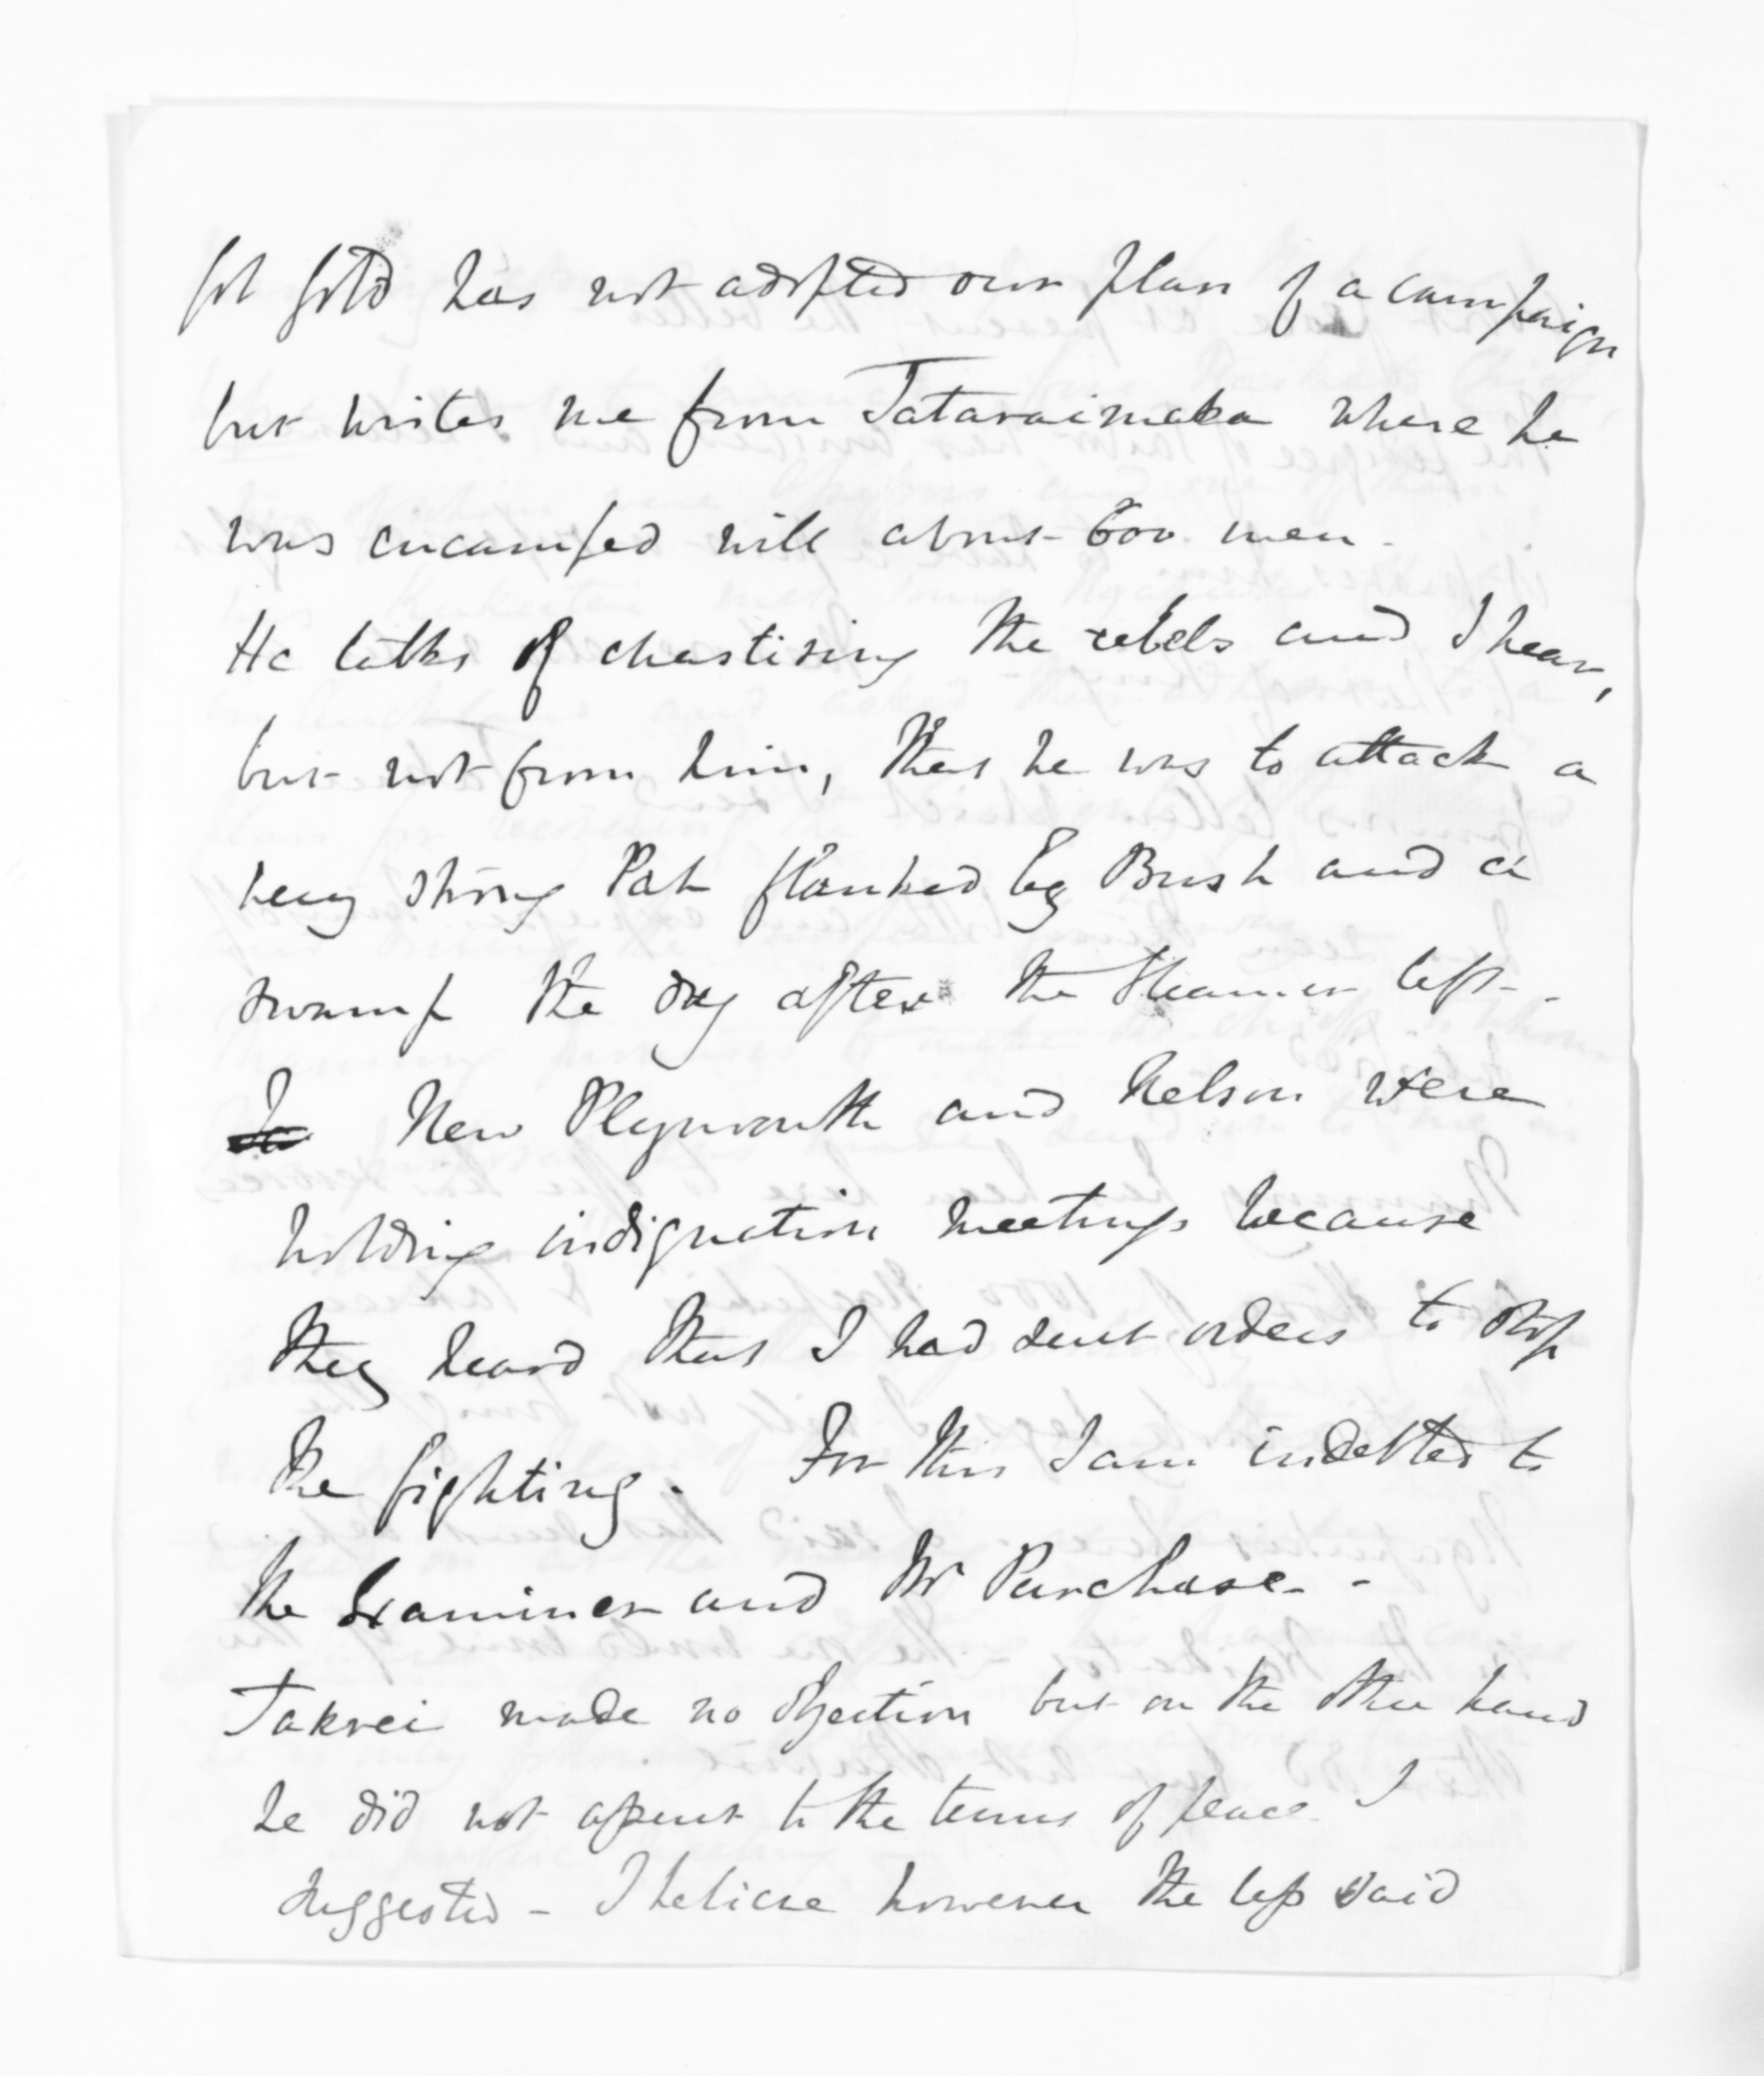 Col Gold has not adopted our plan of a campaign
but writes me from Tataraimaka where he
was encamped with about 600 men.
He talks of chastising the rebels and I hear,
but not from him, that he was to attack a
very strong Pah flanked by Bush and a
swamp the day after the Steamer left.
In New Plymouth and Nelson were
holding indignation meetings because
they heard that I had sent orders to stop
the fighting. For this I am indebted to
the Examiner and Mr Purchase. -
Takrei made no objection but on the other hand
he did not assent to the terms of peace I
suggested - I believe however the less said